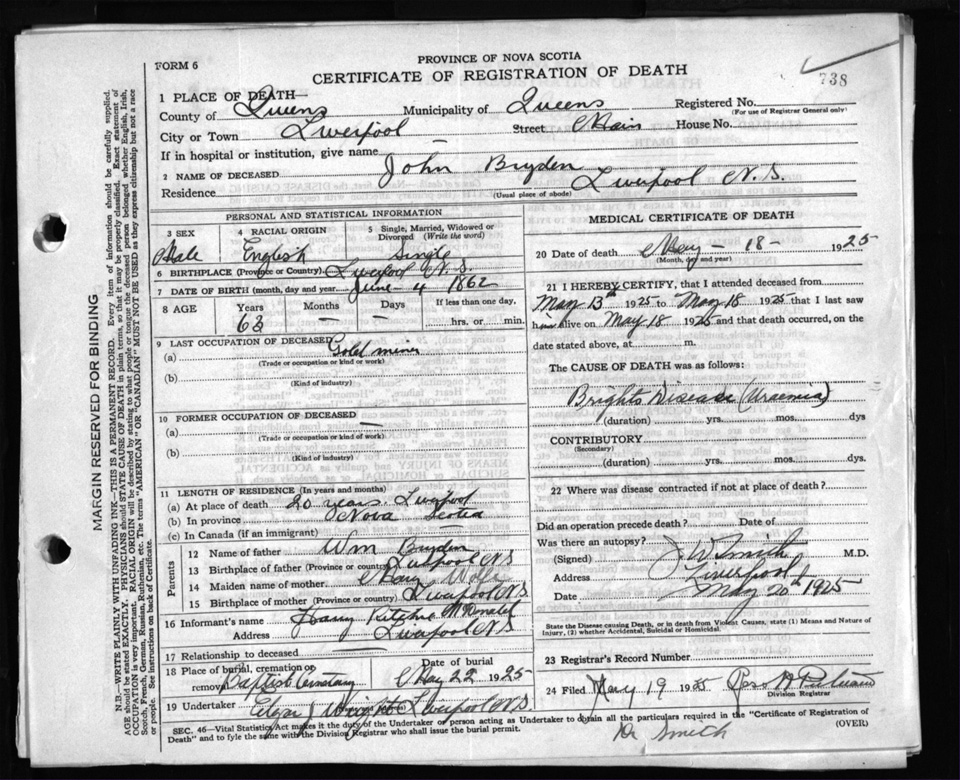 FORM 6
PROVINCE OF NOVA SCOTIA
CERTIFICATE OF REGISTRATION OF DEATH
738
1 PLACE OF DEATH—
County of Queens Municipality of Queens Registered No.
(For use of Registrar General only)
City or Town Liverpool Street Main House No.
If in hospital or institution, give name
2 NAME OF DECEASED John Bryden
Residence (Usual place of abode) Liverpool N. S.
PERSONAL AND STATISTICAL INFORMATION
3 SEX
Male
4 RACIAL ORIGIN
English
5 Single, Married, Widowed or Divorced (Write the word)
Single
6 BIRTHPLACE (Province or Country) Liverpool N. S.
7 DATE OF BIRTH (month, day and year) June 4 1862
8 AGE Years Months Days If less than one day,
63 — — hrs. or min.
9 LAST OCCUPATION OF DECEASED
(a) Gold miner
(Trade or occupation or kind or work)
(b)
(Kind of industry)
10 FORMER OCCUPATION OF DECEASED
(a) —
(Trade or occupation or kind of work)
(b)
(Kind of industry)
11 LENGTH OF RESIDENCE (In years and months)
(a) At place of death 20 years. Liverpool
(b) In province Nova Scotia
(c) In Canada (if an immigrant)
Parents
12 Name of father Wm Bryden
13 Birthplace of father (Province or country) Liverpool NS
14 Maiden name of mother Mary Wolfe
15 Birthplace of mother (Province or country) Liverpool N.S.
16 Informant's name Harry Ritchie McDonald
Address Liverpool N S
17 Relationship to deceased —
18 Place of burial, cremation or removal Baptist Cemetary Date of burial May 22 1925
19 Undertaker Liverpool N S
SEC. 46—Vital Statistics Act makes it the duty of the Undertaker or person acting as Undertaker to obtain all the particulars required in the "Certificate of Registration of
Death" and to fyle the same with the Division Registrar who shall issue the burial permit. (OVER)
Dr Smith
MEDICAL CERTIFICATE OF DEATH
20 Date of death May – 18 – 1925
(Month, day and year)
21 I HEREBY CERTIFY, that I attended deceased from
May 13th 1925 to May 18 1925 that I last saw
him alive on May 18 1925 and that death occurred, on the
date stated above, at m.
The CAUSE OF DEATH was as follows:
Brights Disease (Uraemia)
(duration) yrs. mos. dys
CONTRIBUTORY
(Secondary)
(duration) yrs. mos. dys.
22 Where was disease contracted if not at place of death?
Did an operation precede death? Date of
Was there an autopsy?
(Signed) J W Smith M.D.
Address Liverpool
Date May 20th 1925
State the Disease causing Death, or in death from Violent Causes, state (1) Means and Nature of
Injury, (2) whether Accidental, Suicidal or Homicidal.
23 Registrar's Record Number
24 Filed May 19 1925
Division Registrar
MARGIN RESERVED FOR BINDING
N.B.—WRITE PLAINLY WITH UNFADING INK—THIS IS A PERMANENT RECORD. Every item of information should be carefully supplied.
AGE should be stated EXACTLY. PHYSICIANS should STATE CAUSE OF DEATH in plain terms, so that it may be properly classified. Exact statement of
OCCUPATION is very important. RACIAL ORIGIN will be described by stating to what people or tongue the deceased person belonged whether English, Irish,
Scotch, French, German, Russian, Ruthenian, etc. The terms "AMERICAN" OR "CANADIAN" MUST NOT BE USED as they express citizenship but not a race
or people. See instructions on back of Certificate.